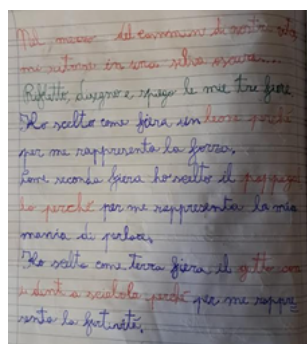 Nel mezzo del cammin di nostra vita
mi ritrovai in una selva oscura...
Rifletto, disegno e spiego le mie tre fiere
Ho scelto come fiera un leone perché
per me rappresenta la forza.
Come seconda fiera ho scelto il pappagal
lo perché per me rappresenta la mia
mania di parlare.
Ho scelto come terza fiera il gatto con
i denti a sciabola perché per me rappre
senta la